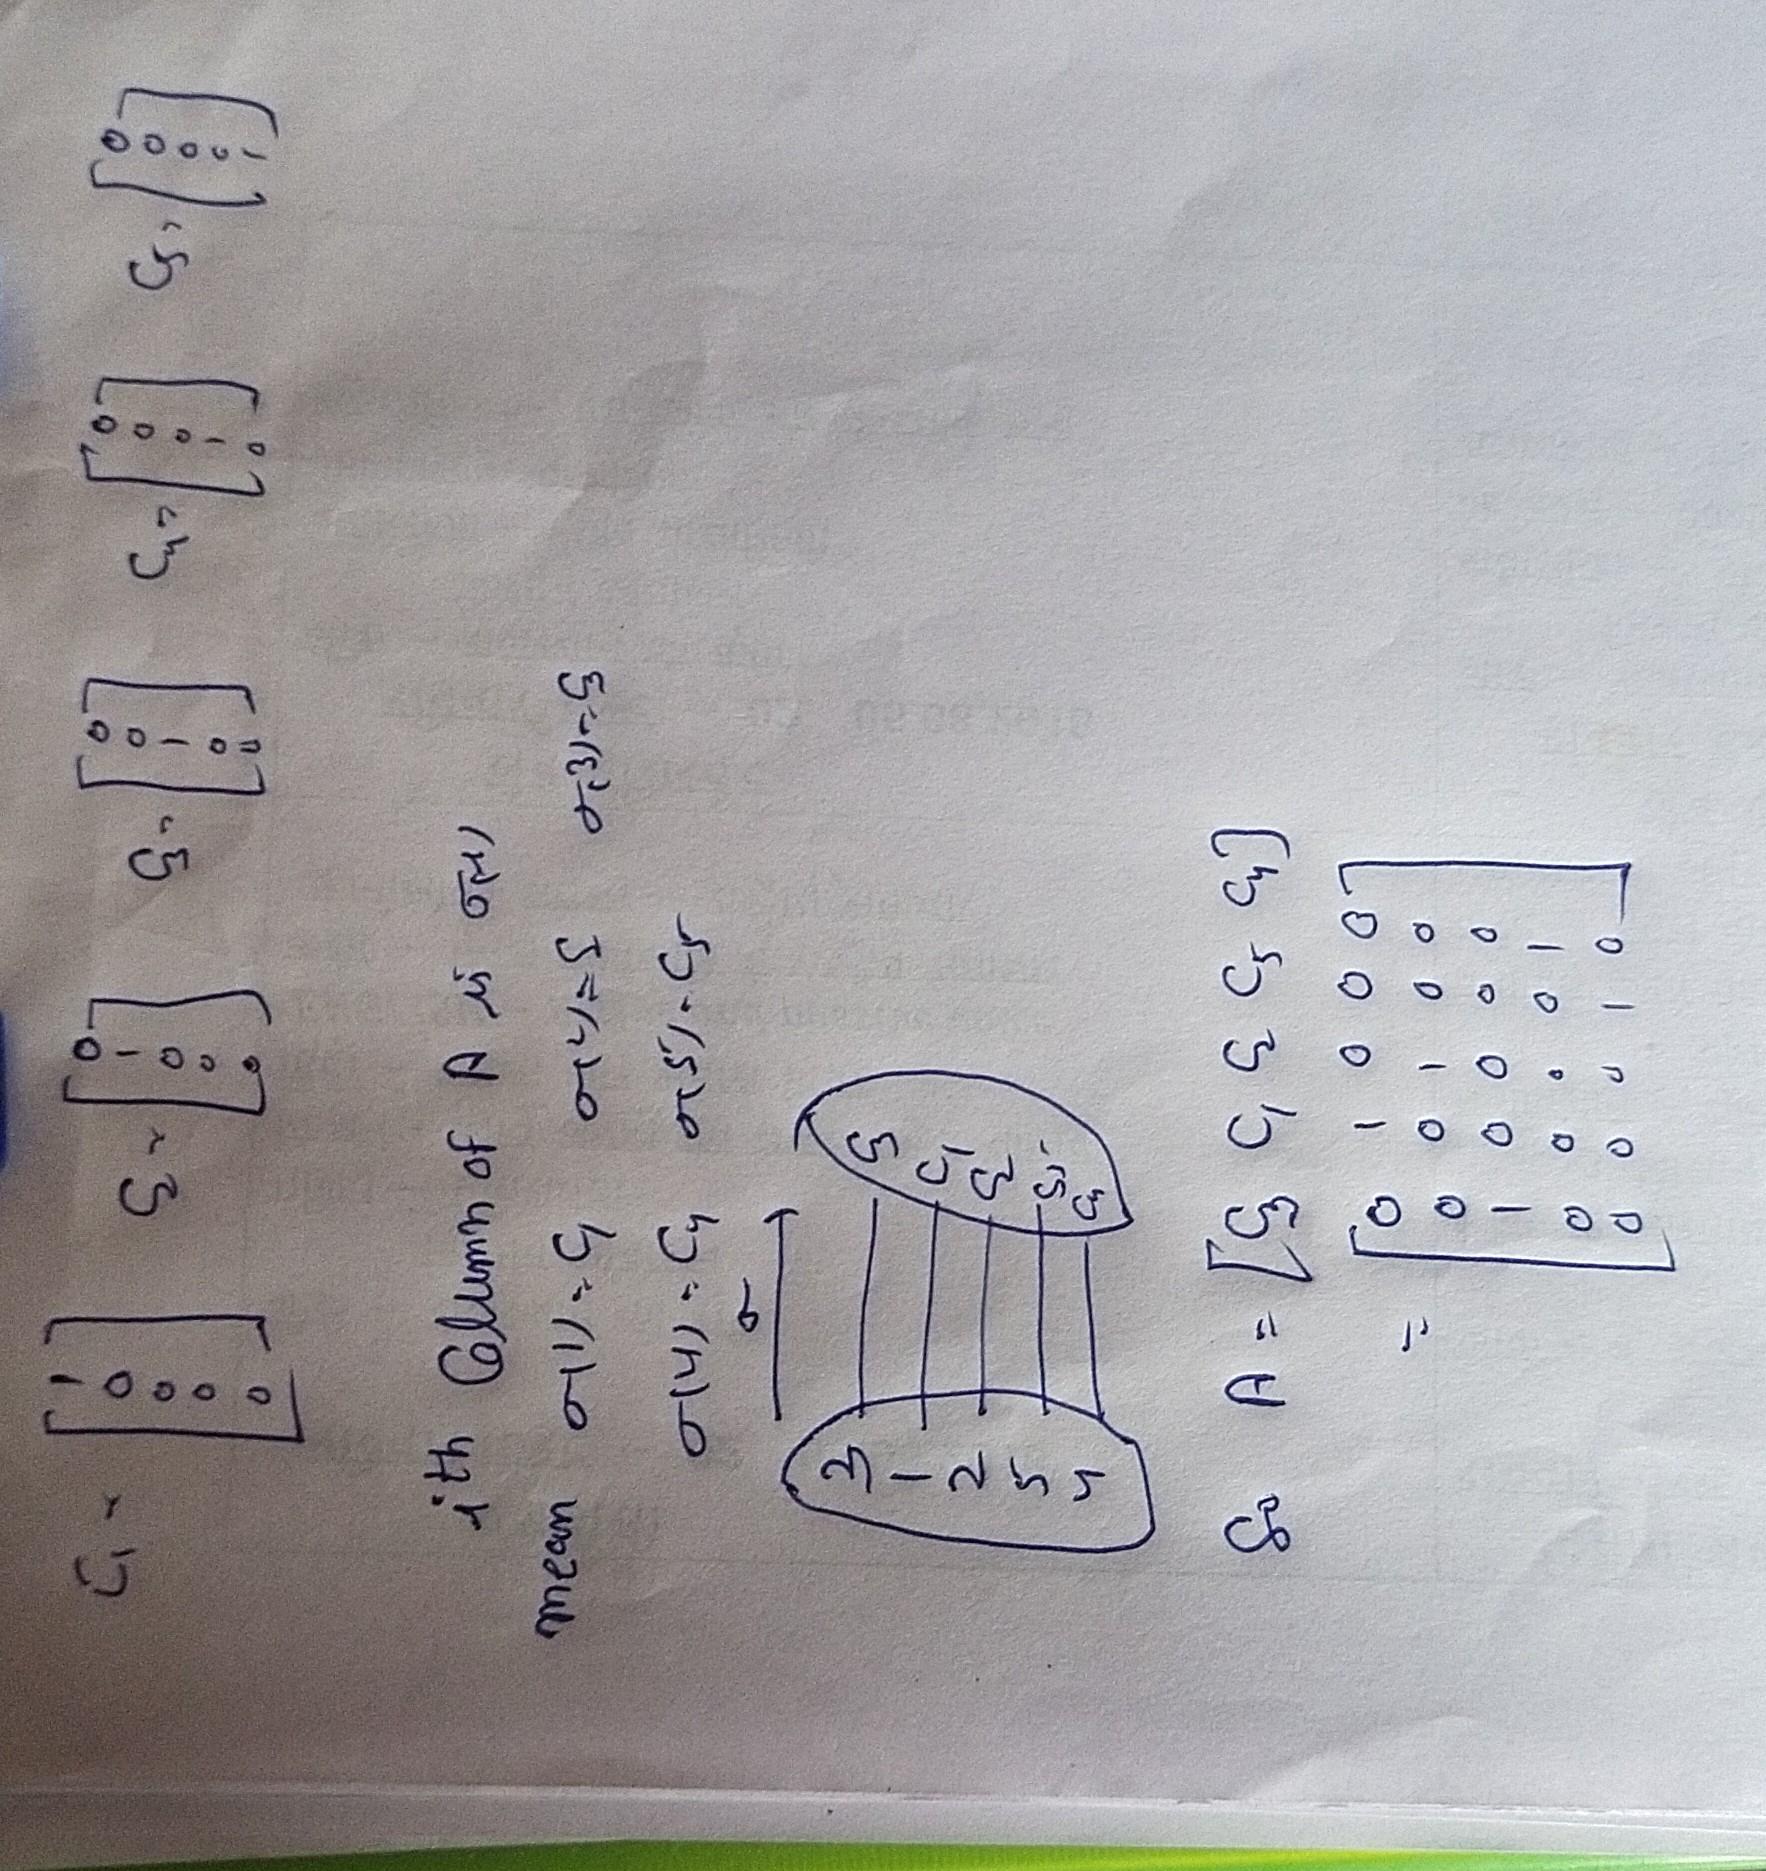 C₁ = [1 0 0 0 0] C₂ = [0 1 0 0 0] C₃ = [0 0 1 0 0] C₄ = [0 0 0 1 0] C₅ = [0 0 0 0 1]
ith Column of A is σ(i)
mean σ(1) = C₁ σ(2) = C₂ σ(3) = C₃
σ(4) = C₄ σ(5) = C₅
σ
3 C₃
1 C₁
2 C₂
5 C₅
4 C₄
So A = [C₃ C₁ C₂ C₅ C₄]
= [0 1 0 0 0
0 0 1 0 0
1 0 0 0 0
0 0 0 0 1
0 0 0 1 0]